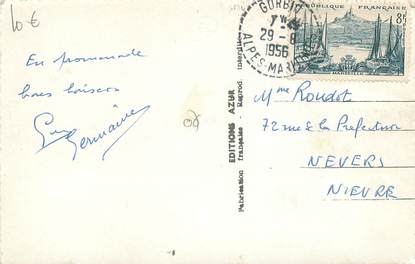 10 €
En promenade
bons baisers
Guy
Germaine
08
EDITIONS AZUR
Fabrication française - Reprod. interdite
GORBIO
29 - 8
1956
ALPES-MARITIMES
REPUBLIQUE FRANÇAISE
8F
MARSEILLE
Mme Roudot
72 rue de la Préfecture
NEVERS
NIEVRE